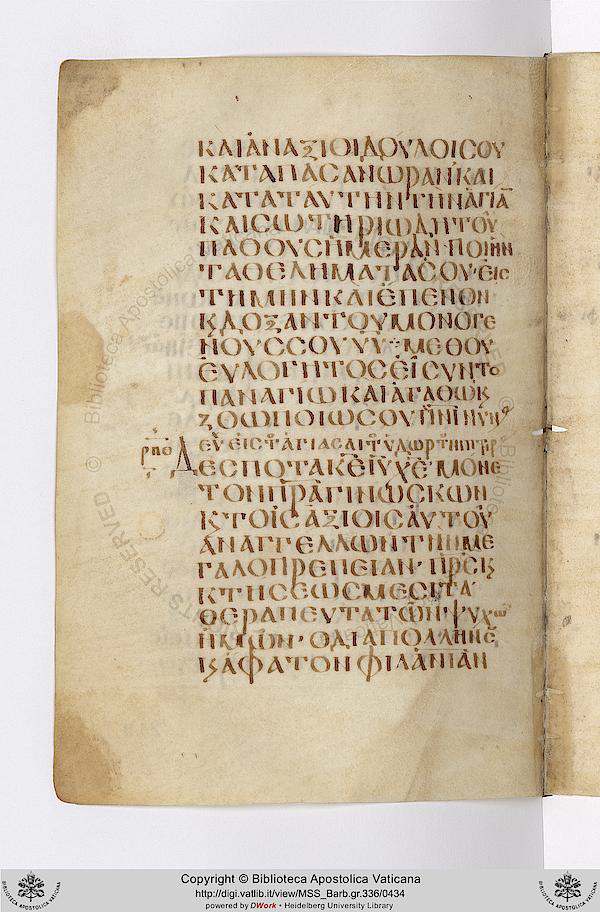 ΚΑΙ ΑΝΑΞΙΟΙ ΔΟΥΛΟΙ ΣΟΥ
ΚΑΤΑ ΠΑΣΑΝ ΩΡΑΝ ΚΑΙ
ΚΑΤΑ ΤΑΥΤΗΝ ΤΗΝ ΑΓΙΑ
ΚΑΙ ΣΩΤΗΡΙΩΔΗ ΤΟΥ
ΠΑΘΟΥΣ ΗΜΕΡΑΝ· ΠΟΙΗΝ
ΤΑ ΘΕΛΗΜΑΤΑ ΣΟΥ· ΕΙΣ
ΤΗΜΗΝ Κ ΑΙ ΕΠΕΝΟΝ
Κ ΔΟΞΑΝ ΤΟΥ ΜΟΝΟΓΕ
ΝΟΥΣ ΣΟΥ ΥΥ· ΜΕΘ ΟΥ
ΕΥΛΟΓΗΤΟΣ ΕΙ ΣΥΝ ΤΟ
ΠΑΝΑΓΙΩ ΚΑΙ ΑΓΑΘΩ Κ
ΖΟΩΠΟΙΩ ΣΟΥ ΠΝΙ ΝΥΝ
ΔΕΣΠΟΤΑ ΚΕ ΙΥ ΧΕ· Ο ΜΟΝΕ
ΤΟΝ ΠΡΑ ΓΙΝΩΣΚΩΝ
Κ ΤΟΙΣ ΑΞΙΟΙΣ ΑΥΤΟΥ
ΑΝΑΓΓΕΛΛΩΝ ΤΗΝ ΜΕ
ΓΑΛΟΠΡΕΠΕΙΑΝ·
ΚΤΗΣΕΩΣ ΜΕΣΙΤΑ·
ΘΕΡΑΠΕΥΤΑ ΤΩΝ ΨΥΧΩ
ΗΜΩΝ· Ο ΔΙΑ ΠΟΛΛΗΝ Σ
Κ ΑΦΑΤΟΝ ΦΙΛΑΝΙΑΝ
© Biblioteca Apostolica Vaticana
RIGHTS RESERVED
Copyright © Biblioteca Apostolica Vaticana
http://digi.vatlib.it/view/MSS_Barb.gr.336/0434
powered by DWork · Heidelberg University Library